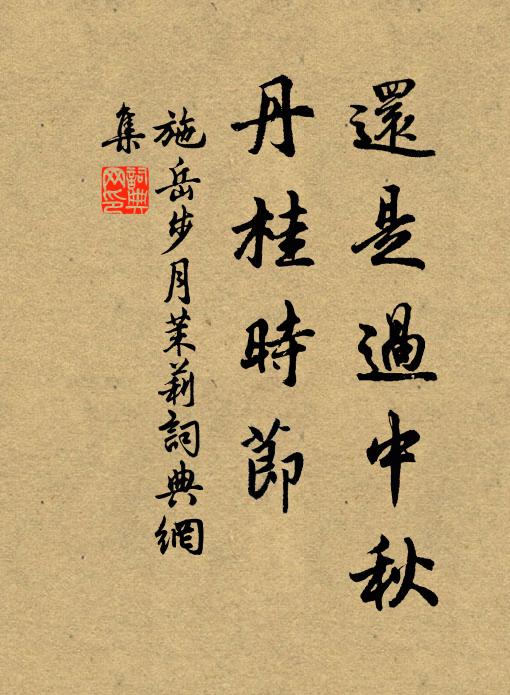 還是過中秋
丹桂時節
施岳步月茉莉詞典網
集
詞典
网印